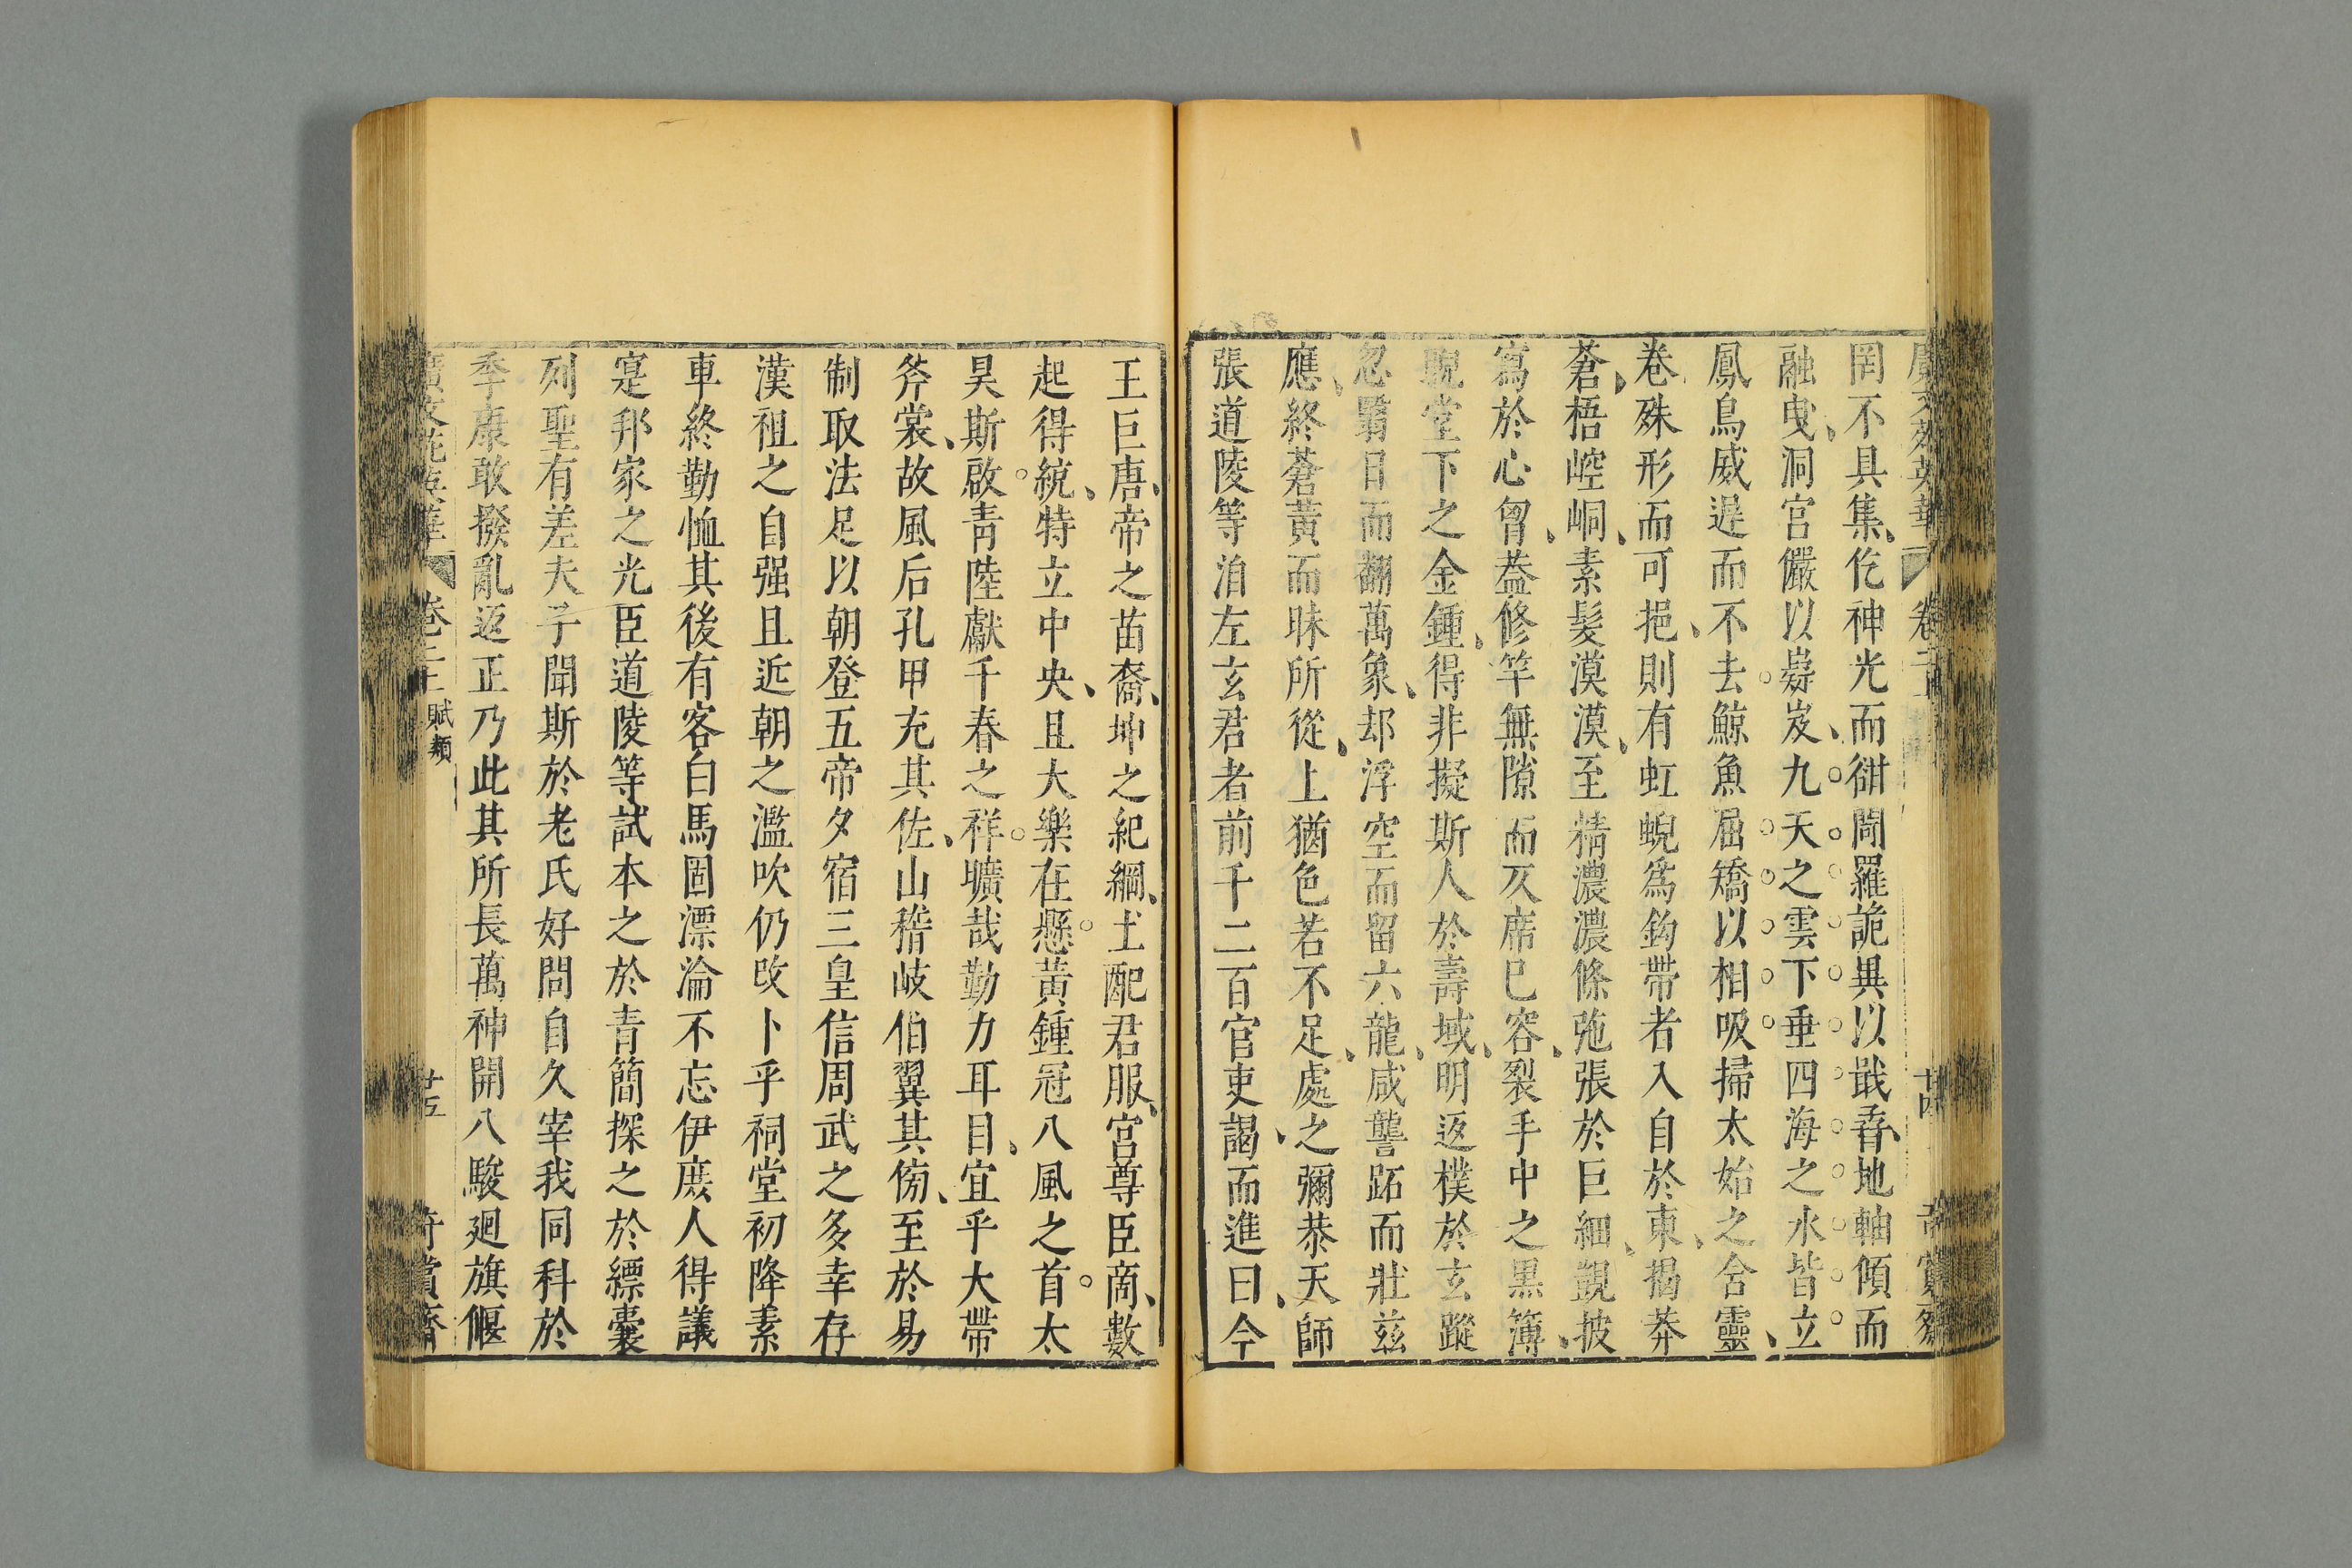 廣文苑英華 卷二十 十四 奇賞齋
罔不具集仡神光而徔閜羅詭異以戢孴地軸傾而
融曳洞宮儼以嶷岌九天之雲下垂四海之水皆立
鳳鳥威遲而不去鯨魚屈矯以相吸掃太始之含靈
卷殊形而可挹則有虹蜺爲鈎帶者入自於東揭莽
蒼梧崆峒素髮漠漠至精濃濃條弛張於巨細覿披
寫於心胷葢修竿無隙而仄席已容裂手中之黑簿
睨堂下之金鍾得非擬斯人於壽域明返樸於玄蹤
忽翳日而翻萬象却浮空而留六龍咸讋跖而壯茲
應終蒼黃而昧所從上猶色若不足處之彌恭天師
張道陵等洎左玄君者前千二百官吏謁而進曰今
王巨唐帝之苗裔坤之紀綱土配君服宮尊臣商數
起得統特立中央且大樂在懸黃鍾冠八風之首太
昊斯啟靑陸獻千春之祥曠哉勤力耳目宜乎大帶
斧裳故風后孔甲充其佐山稽岐伯翼其傍至於易
制取法足以朝登五帝夕宿三皇信周武之多幸存
漢祖之自强且近朝之濫吹仍改卜乎祠堂初降素
車終勤恤其後有客白馬固漂淪不忘伊庶人得議
寔邦家之光臣道陵等試本之於青簡探之於縹囊
列聖有差夫子聞斯於老氏好問自久宰我同科於
季康敢撥亂返正乃此其所長萬神開八駿廻旗偃
廣文苑英華 卷二十 賦類 廿五 奇賞齋